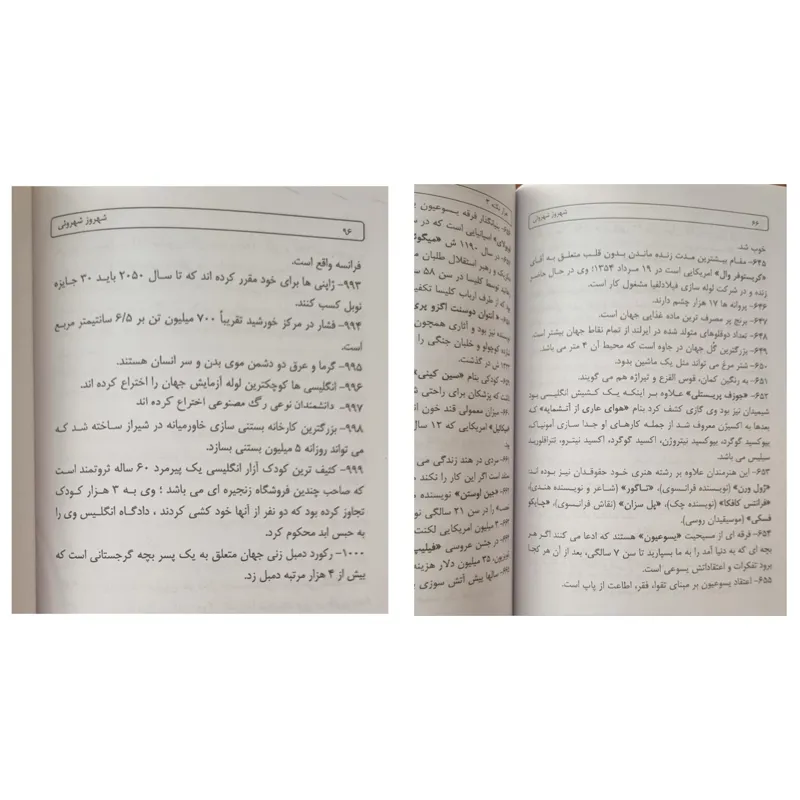 ۹۶
شهروز شهروئی
فرانسه واقع است.
۹۹۳- ژاپنی ها برای خود مقرر کرده اند که تا سال ۲۰۵۰ باید ۳۰ جایزه
نوبل کسب کنند.
۹۹۴- فشار در مرکز خورشید تقریباً ۷۰۰ میلیون تن بر ۶/۵ سانتیمتر مربع
است.
۹۹۵- گرما و عرق دو دشمن موی بدن و سر انسان هستند.
۹۹۶- انگلیسی ها کوچکترین لوله آزمایش جهان را اختراع کرده اند.
۹۹۷- دانشمندان نوعی رگ مصنوعی اختراع کرده اند
۹۹۸- بزرگترین کارخانه بستنی سازی خاورمیانه در شیراز ساخته شد که
می تواند روزانه ۵ میلیون بستنی بسازد.
۹۹۹- کثیف ترین کودک آزار انگلیسی یک پیرمرد ۶۰ ساله ثروتمند است
که صاحب چندین فروشگاه زنجیره ای می باشد ؛ وی به ۳ هزار کودک
تجاوز کرده بود که دو نفر از آنها خود کشی کردند ، دادگاه انگلیس وی را
به حبس ابد محکوم کرد.
۱۰۰۰- رکورد دمبل زنی جهان متعلق به یک پسر بچه گرجستانی است که
بیش از ۴ هزار مرتبه دمبل زد.
۶۶
شهروز شهروئی
خوب شد.
۶۴۵- مقام بیشترین مدت زنده ماندن بدون قلب متعلق به آقای
«کریستوفر وال» امریکایی است در ۱۹ مرداد ۱۳۵۴؛ وی در حال حاضر
زنده و در شرکت لوله سازی فیلادلفیا مشغول کار است.
۶۴۶- پروانه ها ۱۷ هزار چشم دارند.
۶۴۷- برنج پر مصرف ترین ماده غذایی جهان است.
۶۴۸- تعداد دوقلوهای متولد شده در ایرلند از تمام نقاط جهان بیشتر است
۶۴۹- بزرگترین گُل جهان در جاوه است که محیط آن ۴ متر می باشد.
۶۵۰- شتر مرغ می تواند مثل یک ماشین بدود.
۶۵۱- به رنگین کمان، قوس القزع و تیراژه هم می گویند.
۶۵۲- «جوزف پریستلی» علاوه بر اینکه یک کشیش انگلیسی بود
شیمیدان نیز بود وی گازی کشف کرد بنام «هوای عاری از آتشمایه» که
بعدها به اکسیژن معروف شد از جمله کارهای او جدا سازی آمونیاک،
بیوکسید گوگرد، بیوکسید نیتروژن، اکسید گوگرد، اکسید نیترو، تترافلورید
سیلیس می باشد.
۶۵۳- این هنرمندان علاوه بر رشته هنری خود حقوقدان نیز بوده اند:
«ژول ورن» (نویسنده فرانسوی)، «تاگور» (شاعر و نویسنده هندی)،
«فرانتس کافکا» (نویسنده چک)، «پل سزان» (نقاش فرانسوی)، «چایکو
فسکی» (موسیقیدان روسی).
۶۵۴- فرقه ای از مسیحیت «یسوعیون» هستند که ادعا می کنند اگر هر
بچه ای که به دنیا آمد را به ما بسپارید تا سن ۷ سالگی، بعد از آن هر کجا
برود تفکرات و اعتقاداتش یسوعی است.
۶۵۵- اعتقاد یسوعیون بر مبنای تقوا، فقر، اطاعت از پاپ است.
هزار نکته ۳
بنیانگذار فرقه یسوعیون
اسپانیایی است که در
در سال ۱۱۹۰ ش «میگو
و رهبر استقلال طلبان
توسط کلیسا در سن ۵۸
که از طرف ارباب کلیسا
آنتوان دوسنت اگزو پری
نیز بود و آثاری همچون
کوچولو و خلبان جنگی را
ش در گذشت.
کودکی بنام «سین کینی»
که پزشکان برای راحتی
میزان معمولی قند خون
امریکایی که ۱۲ سال
مردی در هند زندگی می
است اگر این کار را نکند
«جین اوستن» نویسنده
را در سن ۲۱ سالگی
میلیون امریکایی لکنت
در جشن عروسی «فیلیپ
۳۵ میلیون دلار هزینه
سالها پیش آتش سوزی